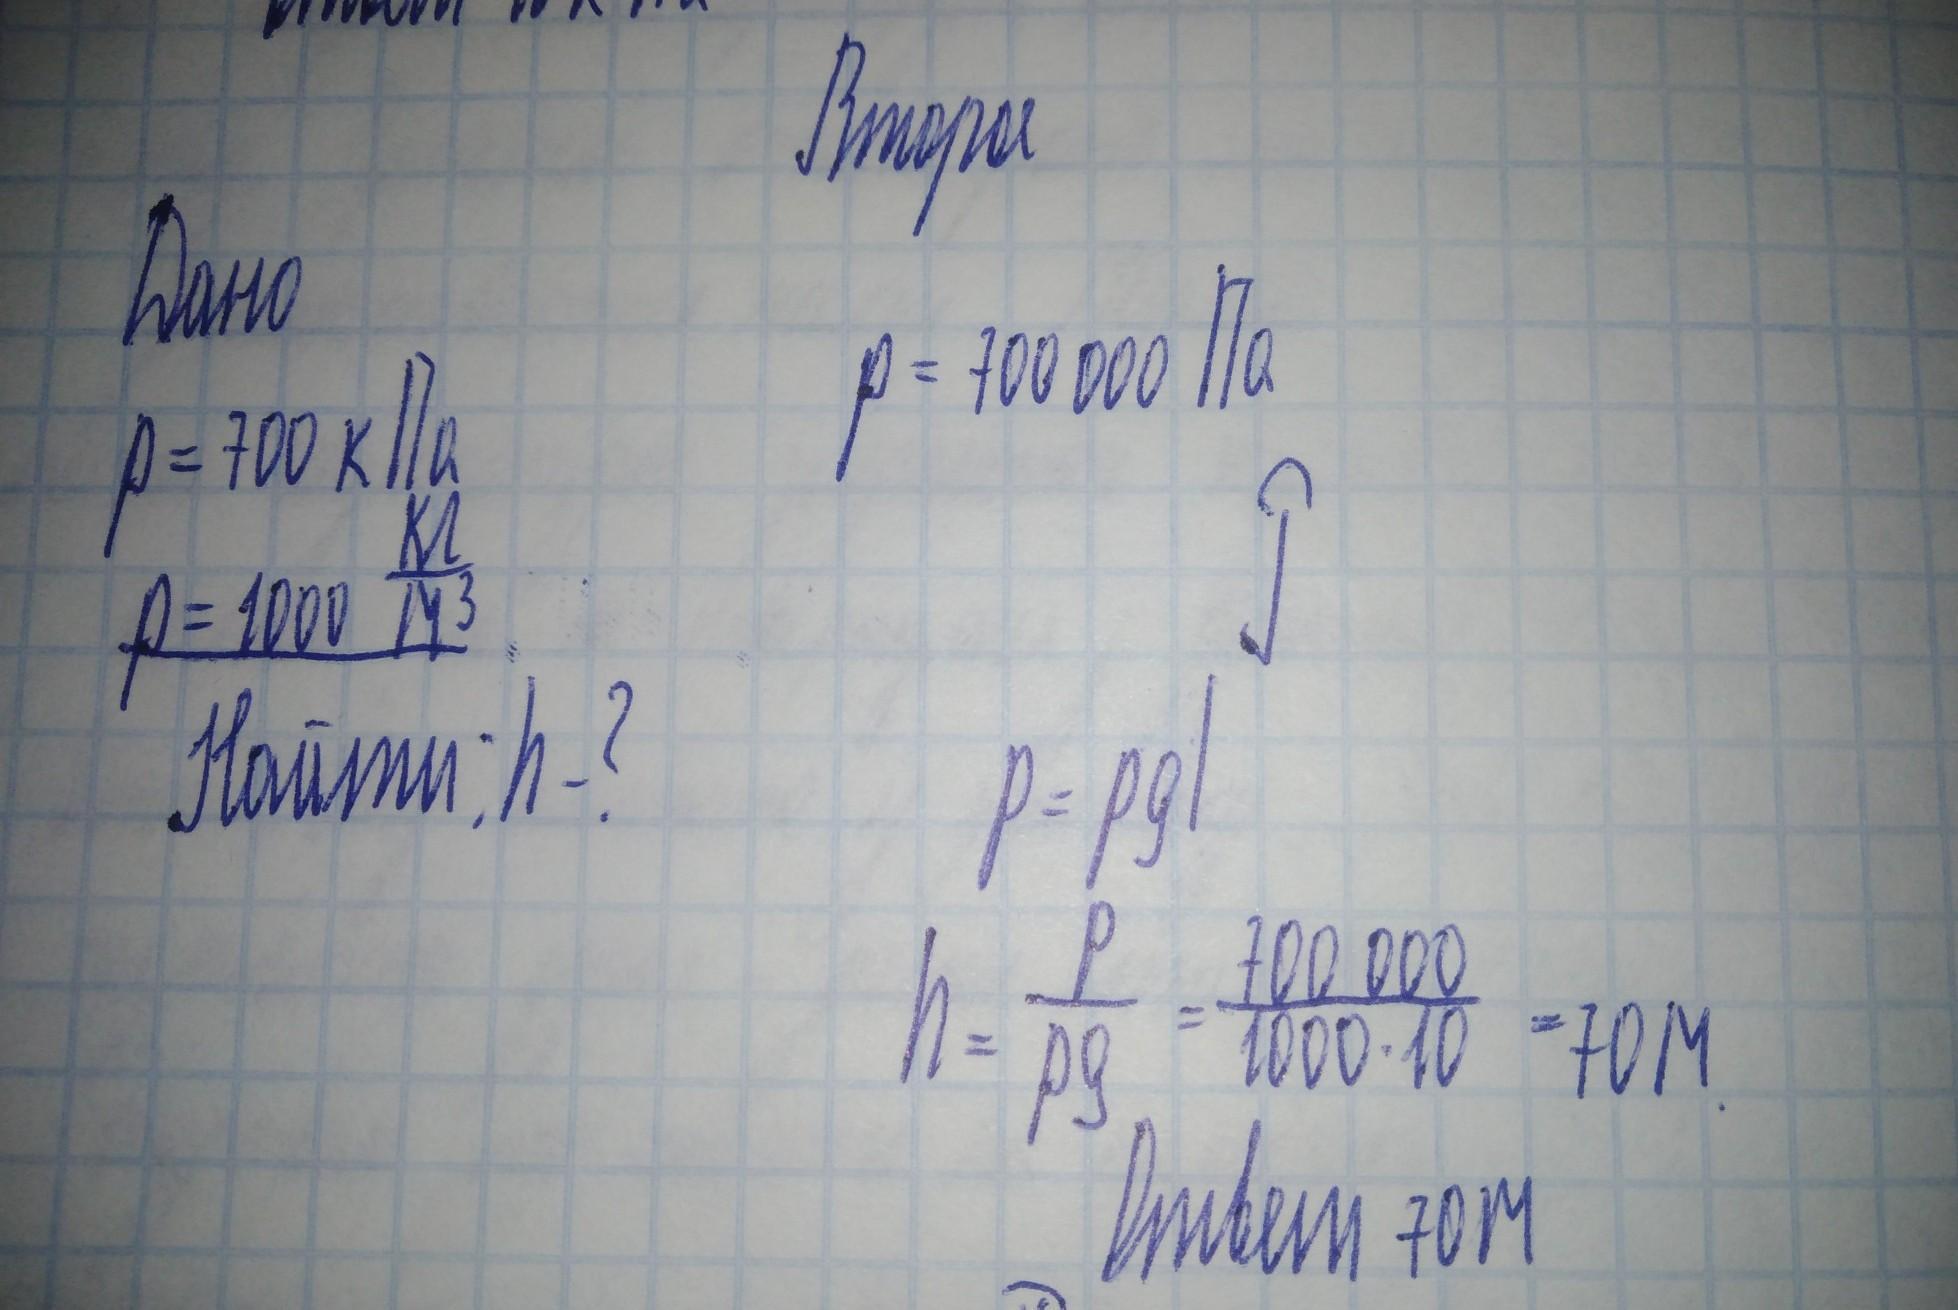 Вторая
Дано
p = 700 кПа
p = 1000 кг/м³
Найти: h - ?
p = 700 000 Па
p = pgl
h = p/pg = 700 000/1000·10 = 70 м.
Ответ 70 м